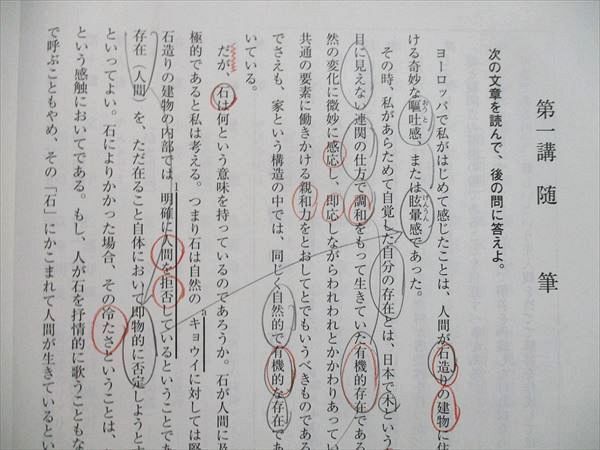 第一講　随　筆
次の文章を読んで、後の問に答えよ。
ヨーロッパで私がはじめて感じたことは、人間が石造りの建物に住
ける奇妙な嘔吐感、または眩暈感であった。
おうと
げんうん
その時、私があらためて自覚した自分の存在とは、日本で木という
目に見えない連関の仕方で調和をもって生きていた有機的存在である
然の変化に微妙に感応し、即応しながらわれわれとかかわりあってい
共通の要素に働きかける親和力をとおしてとでもいうべきものである
でさえも、家という構造の中では、同じく自然的で有機的な存在であ
いている。
だが、石は何という意味を持っているのであろうか。石が人間に及
極的であると私は考える。つまり石は自然のキョウイに対しては堅
a
石造りの建物の内部では、明確に人間を拒否しているということであ
1
存在（人間）を、ただ在ること自体において即物的に否定しようとす
といってよい。石によりかかった場合、その冷たさということは、
という感触においてである。もし、人が石を抒情的に歌うこともな
で呼ぶこともやめ、その「石」にかこまれて人間が生きているとい